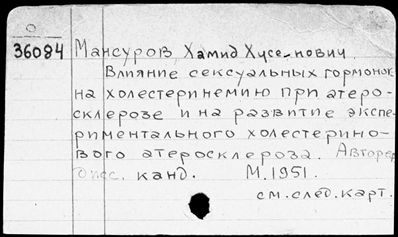 О
36084 Мансуров, Хамид Хусе-нович
Влияние сексуальных гормонов
на холестеринемию при атеро-
склерозе и на развитие экспе-
риментального холестерино-
вого атеросклероза. Авторе
дисс. канд. М. 1951.
см. след. карт.